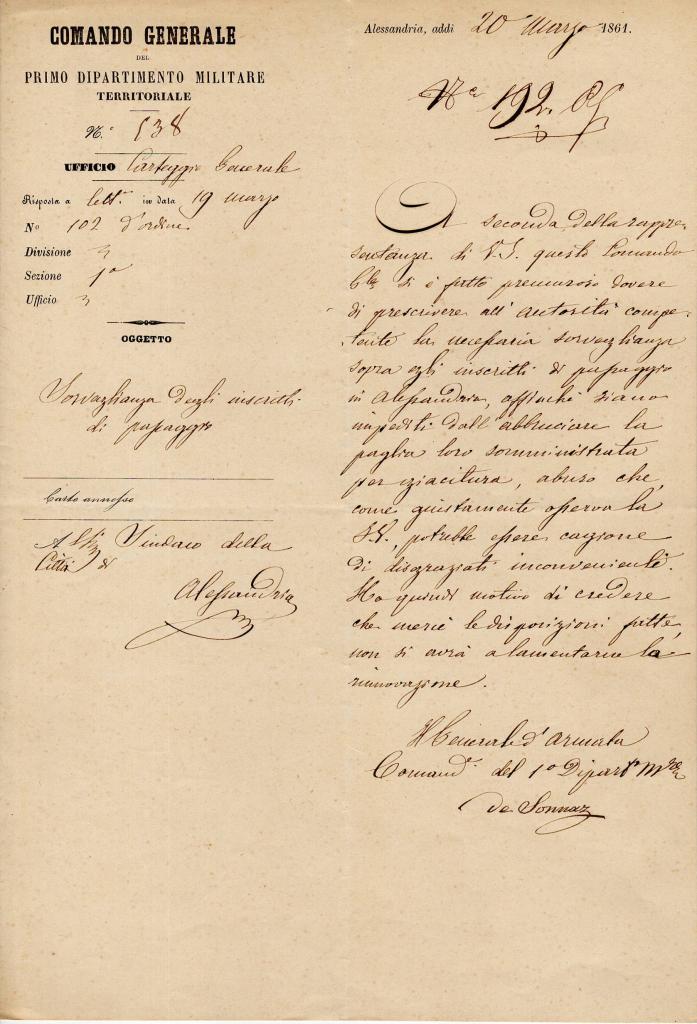 COMANDO GENERALE
DEL
PRIMO DIPARTIMENTO MILITARE
TERRITORIALE
N.° 538
UFFICIO Carteggio Generale
Risposta a lett.ª in data 19 marzo
N° 102 d'ordine
Divisione 3
Sezione 1ª
Ufficio 3
OGGETTO
Sorveglianza degli inscritti
di passaggio
Carte annesse
Al Sindaco della
Città di
Alessandria
Alessandria, addi 20 Marzo 1861.
192.
A seconda della rappre-
sentanza di V.S. questo Comando
Gle si è fatto premuroso dovere
di prescrivere all'autorità compe-
tente la necessaria sorveglianza
sopra egli inscritti di passaggio
in Alessandria, affinché siano
impediti dall'abbruciare la
paglia loro somministrata
per giacitura, abuso che,
come giustamente osserva la
S.V., potrebbe essere cagione
di disgraziati inconvenienti.
Ho quindi motivo di credere
che mercè le disposizioni fatte,
non si avrà a lamentarne la
rinnovazione.
Il Generale d'Armata
Comandte del 1° Dipart.
de Sonnaz